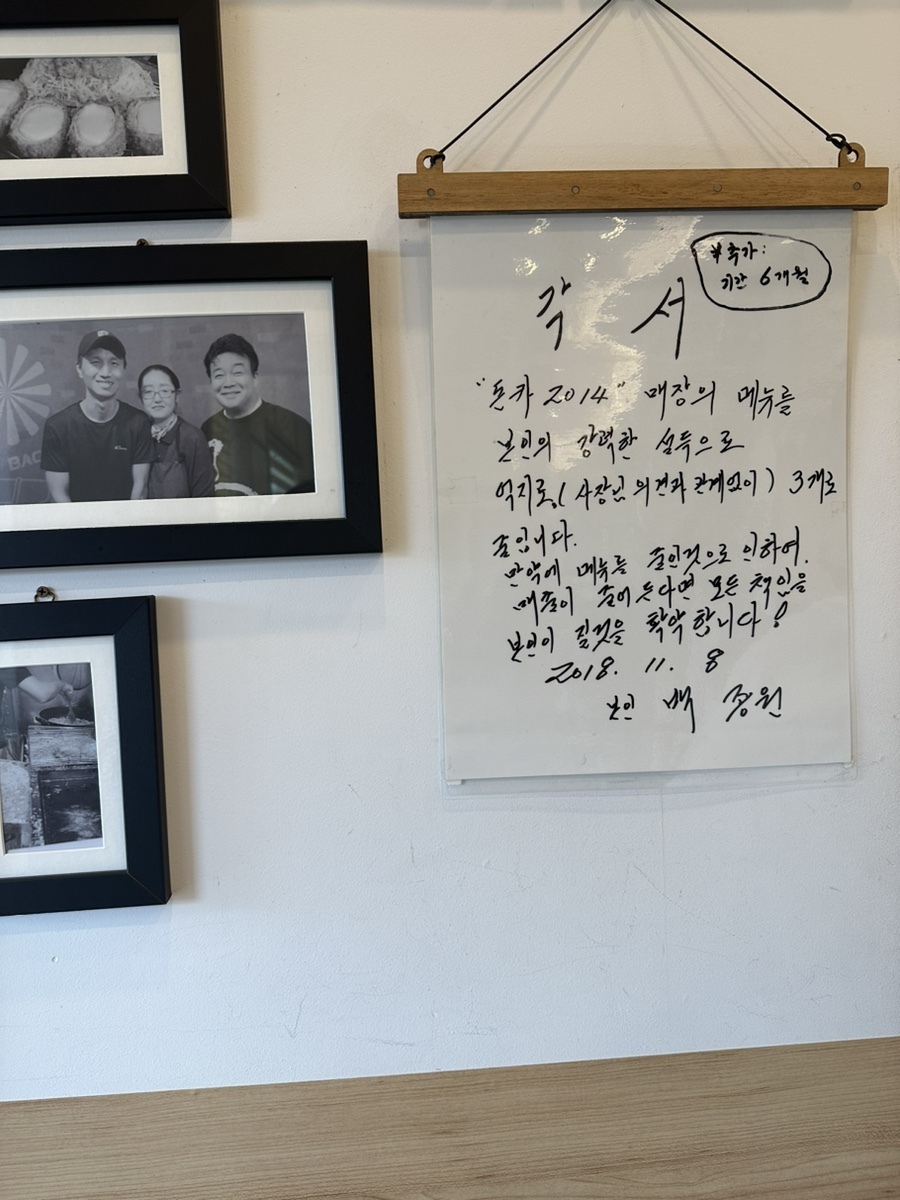 *추가:
기간 6개월
각 서
"돈카 2014" 매장의 메뉴를
본인의 강력한 설득으로
억지로, (사장님 의견과 관계없이) 3개로
줄입니다.
만약에 메뉴를 줄인것으로 인하여,
매출이 줄어 든다면 모든 책임을
본인이 질것을 확약 합니다!
2018. 11. 8
본인 백 종원
BAC